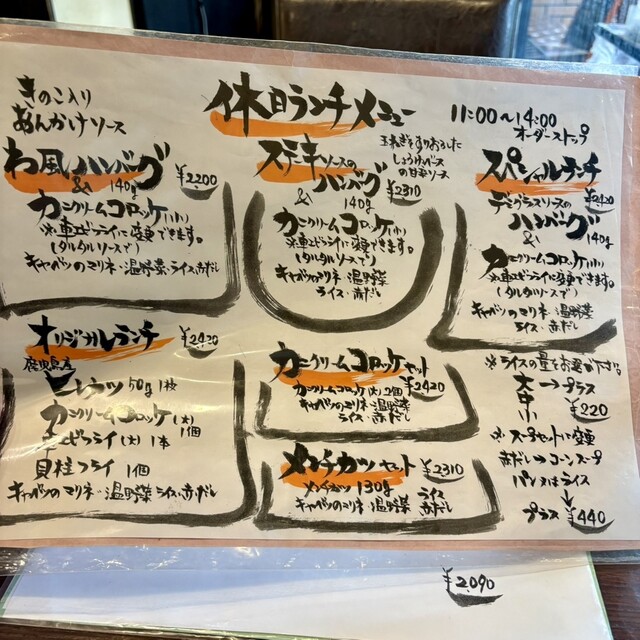 休日ランチメニュー
11:00〜14:00
オーダーストップ
きのこ入り
あんかけソース
わ風ハンバーグ
140g
¥2200
&
カニクリームコロッケ(小)
※車エビフライに変更できます。
(タルタルソースで)
キャベツのマリネ・温野菜・ライス・赤だし
玉ねぎをすりおろした
しょうゆベース
の甘辛ソース
ステーキソースの
ハンバーグ
140g
¥2310
&
カニクリームコロッケ(小)
※車エビフライに変更できます。
(タルタルソースで)
キャベツのマリネ・温野菜
ライス・赤だし
スペシャルランチ
¥2420
デミグラスソースの
ハンバーグ
140g
&
カニクリームコロッケ(小)
※車エビフライに変更できます。
(タルタルソースで)
キャベツのマリネ・温野菜
ライス・赤だし
オリジナルランチ
¥2420
鹿児島産
ヒレカツ 50g 1枚
カニクリームコロッケ(大) 1個
車エビフライ(大) 1本
貝柱フライ 1個
キャベツのマリネ・温野菜・ライス・赤だし
カニクリームコロッケセット
¥2420
カニクリームコロッケ(大)2個
キャベツのマリネ・温野菜
ライス・赤だし
メンチカツセット
¥2310
メンチカツ 130g
キャベツのマリネ・温野菜
ライス
赤だし
※ライスの量をお選び下さい。
大→プラス
中
小
¥220
※スープセットに変更
赤だし→コーンスープ
パン又はライス
プラス ¥440
¥2,090